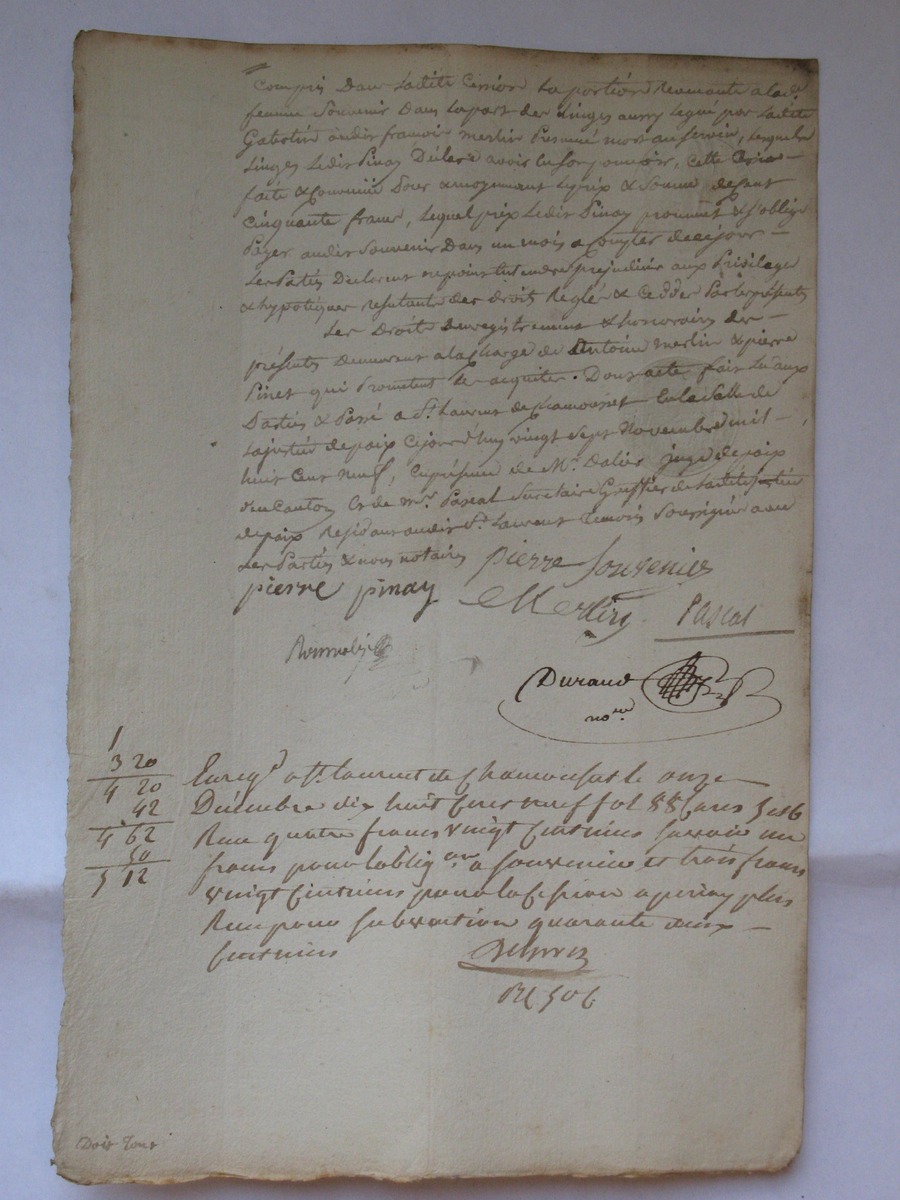 Compris Dans Ladite Cession La portion Revenante a lad.
femme Souvenir Dans La part des Linges aussy Legué par Ladite
audit francois merlin Présumé mort au Service, Lesquels
Linges Ledit Pinay Déclare avoir en Son pouvoir, cette
faite & Convenüe Pour & moyennant Le prix & Somme de Cent
Cinquante francs, Lequel prix Ledit Pinay promet & S'oblige
Payer audit Souvenir Dans un mois a Compter de ce jour —
Les Parties Declarent ne point Entendre préjudicier aux Privileges
& hypoteques Resultants des droits Reglés & Cedder Par les présentes
Les Droits d'enregistrement & honoraires des —
présentes Demeurent a la charge de Antoine merlin & pierre
Pinet qui Promettent Les acquiter. Dont acte fait Lu aux
Parties & Passé a St. Laurent de Chamousset En la Salle de
La justice de paix Cejourd'huy vingt Sept Novembre mil —
huit Cent neuf, En présence de Mr. Dalier juge de paix
du Canton Et de mr. Pascal Secretaire Greffier de Ladite justice
de paix Residants audit St. Laurent Temoins Soussignés avec
Les Parties & nous notaires
pierre Souvenir
pierre pinay
Merlin
Pascal
Durand
nore
1
3 20
4 20
42
4 62
50
5 12
Enregé a St. laurent de Chamousset le onze
Décembre dix huit Cent neuf fol 88 Cases 5 et 6
Recu quatre francs vingt Centimes savoir un
franc pour l'obligaon a souvenir et trois francs
vingt Centimes pour la Cession a pinay plus
Recu pour subvention quarante deux —
Centimes
506